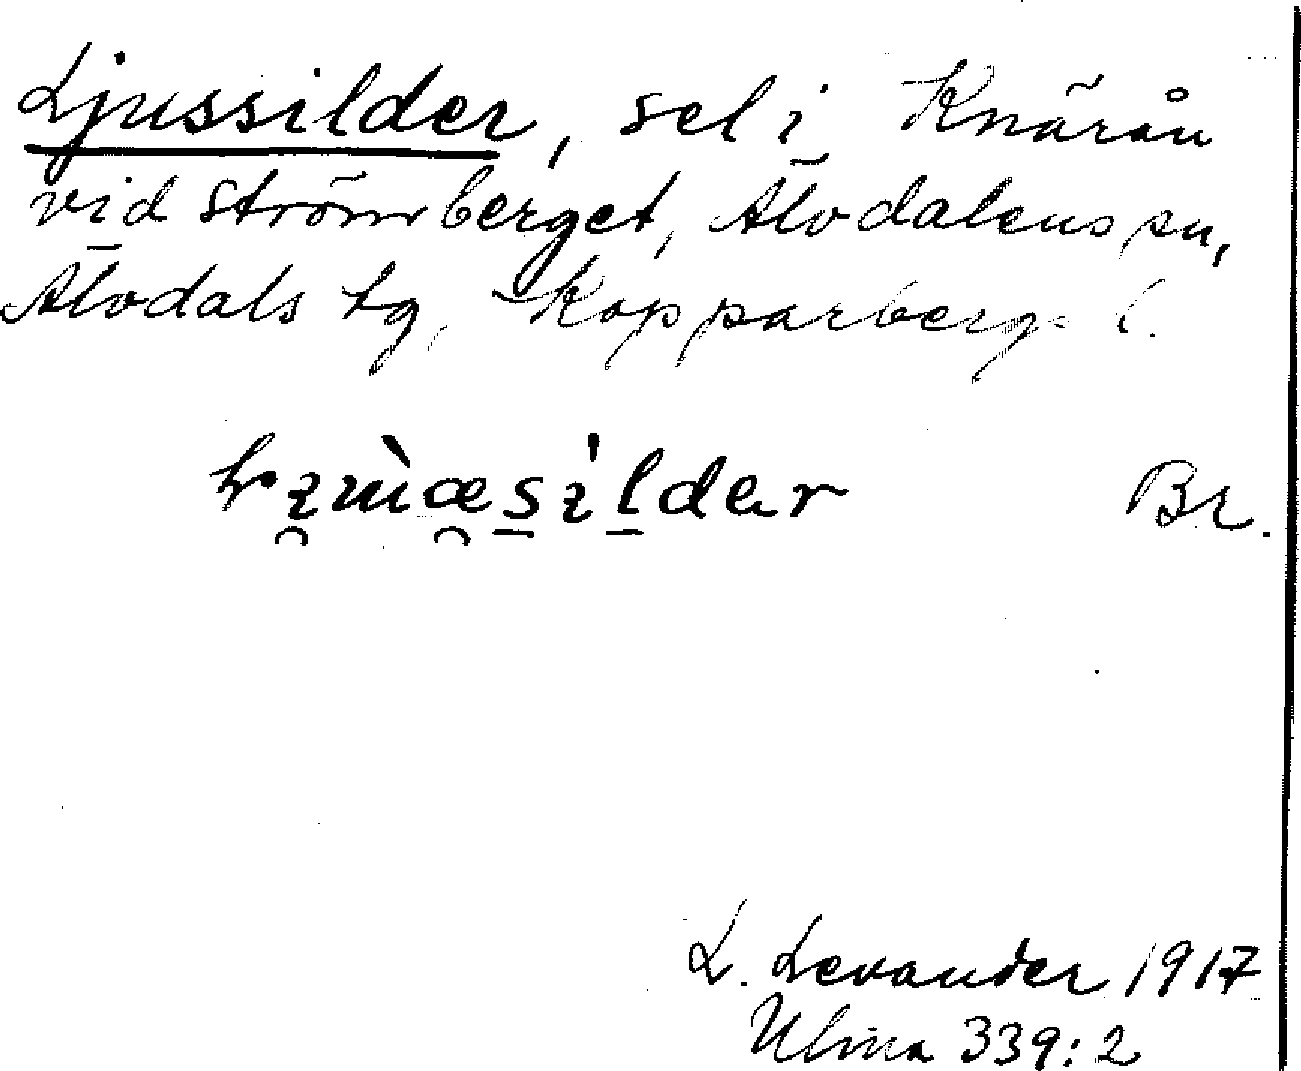 Ljussilder, sel i Knärån
vid Strömberget, Älvdalens sn,
Älvdals tg, Kopparbergs l.
Br.
L. Levander 1917
Ulma 339:2